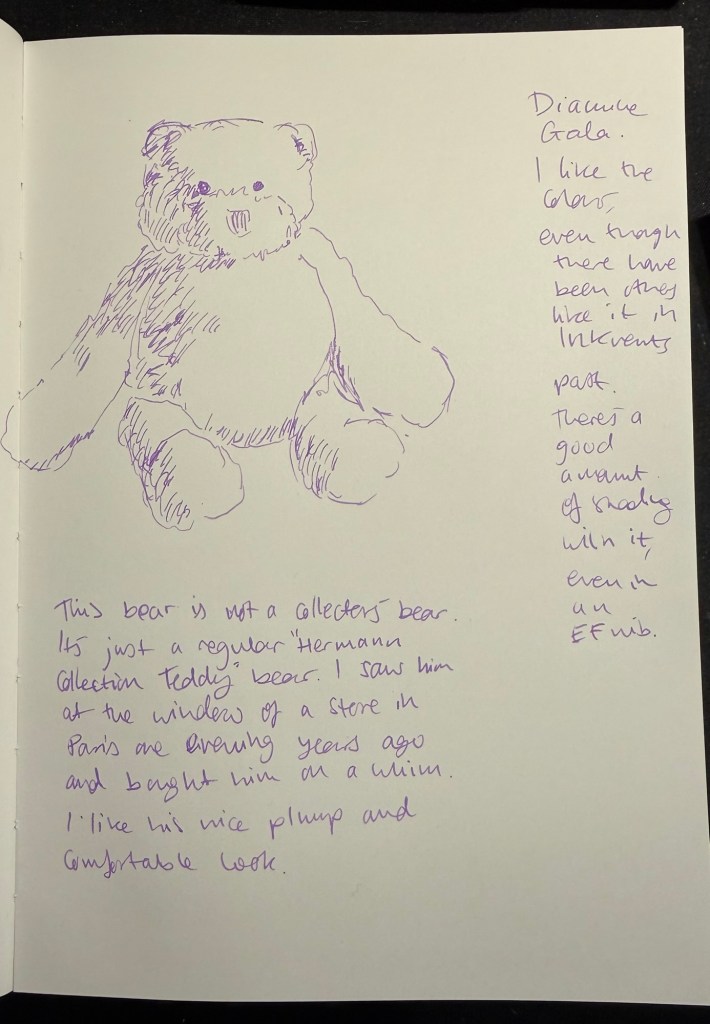 Diamine
Gala.
I like the
colour,
even though
there have
been others
like it in
Inkvents
past.
There's a
good
amount
of shading
with it,
even in
an
EF nib.
This bear is not a collectors bear.
It's just a regular "Hermann
Collection Teddy" bear. I saw him
at the window of a store in
Paris one evening years ago
and bought him on a whim.
I like his nice plump and
comfortable look.